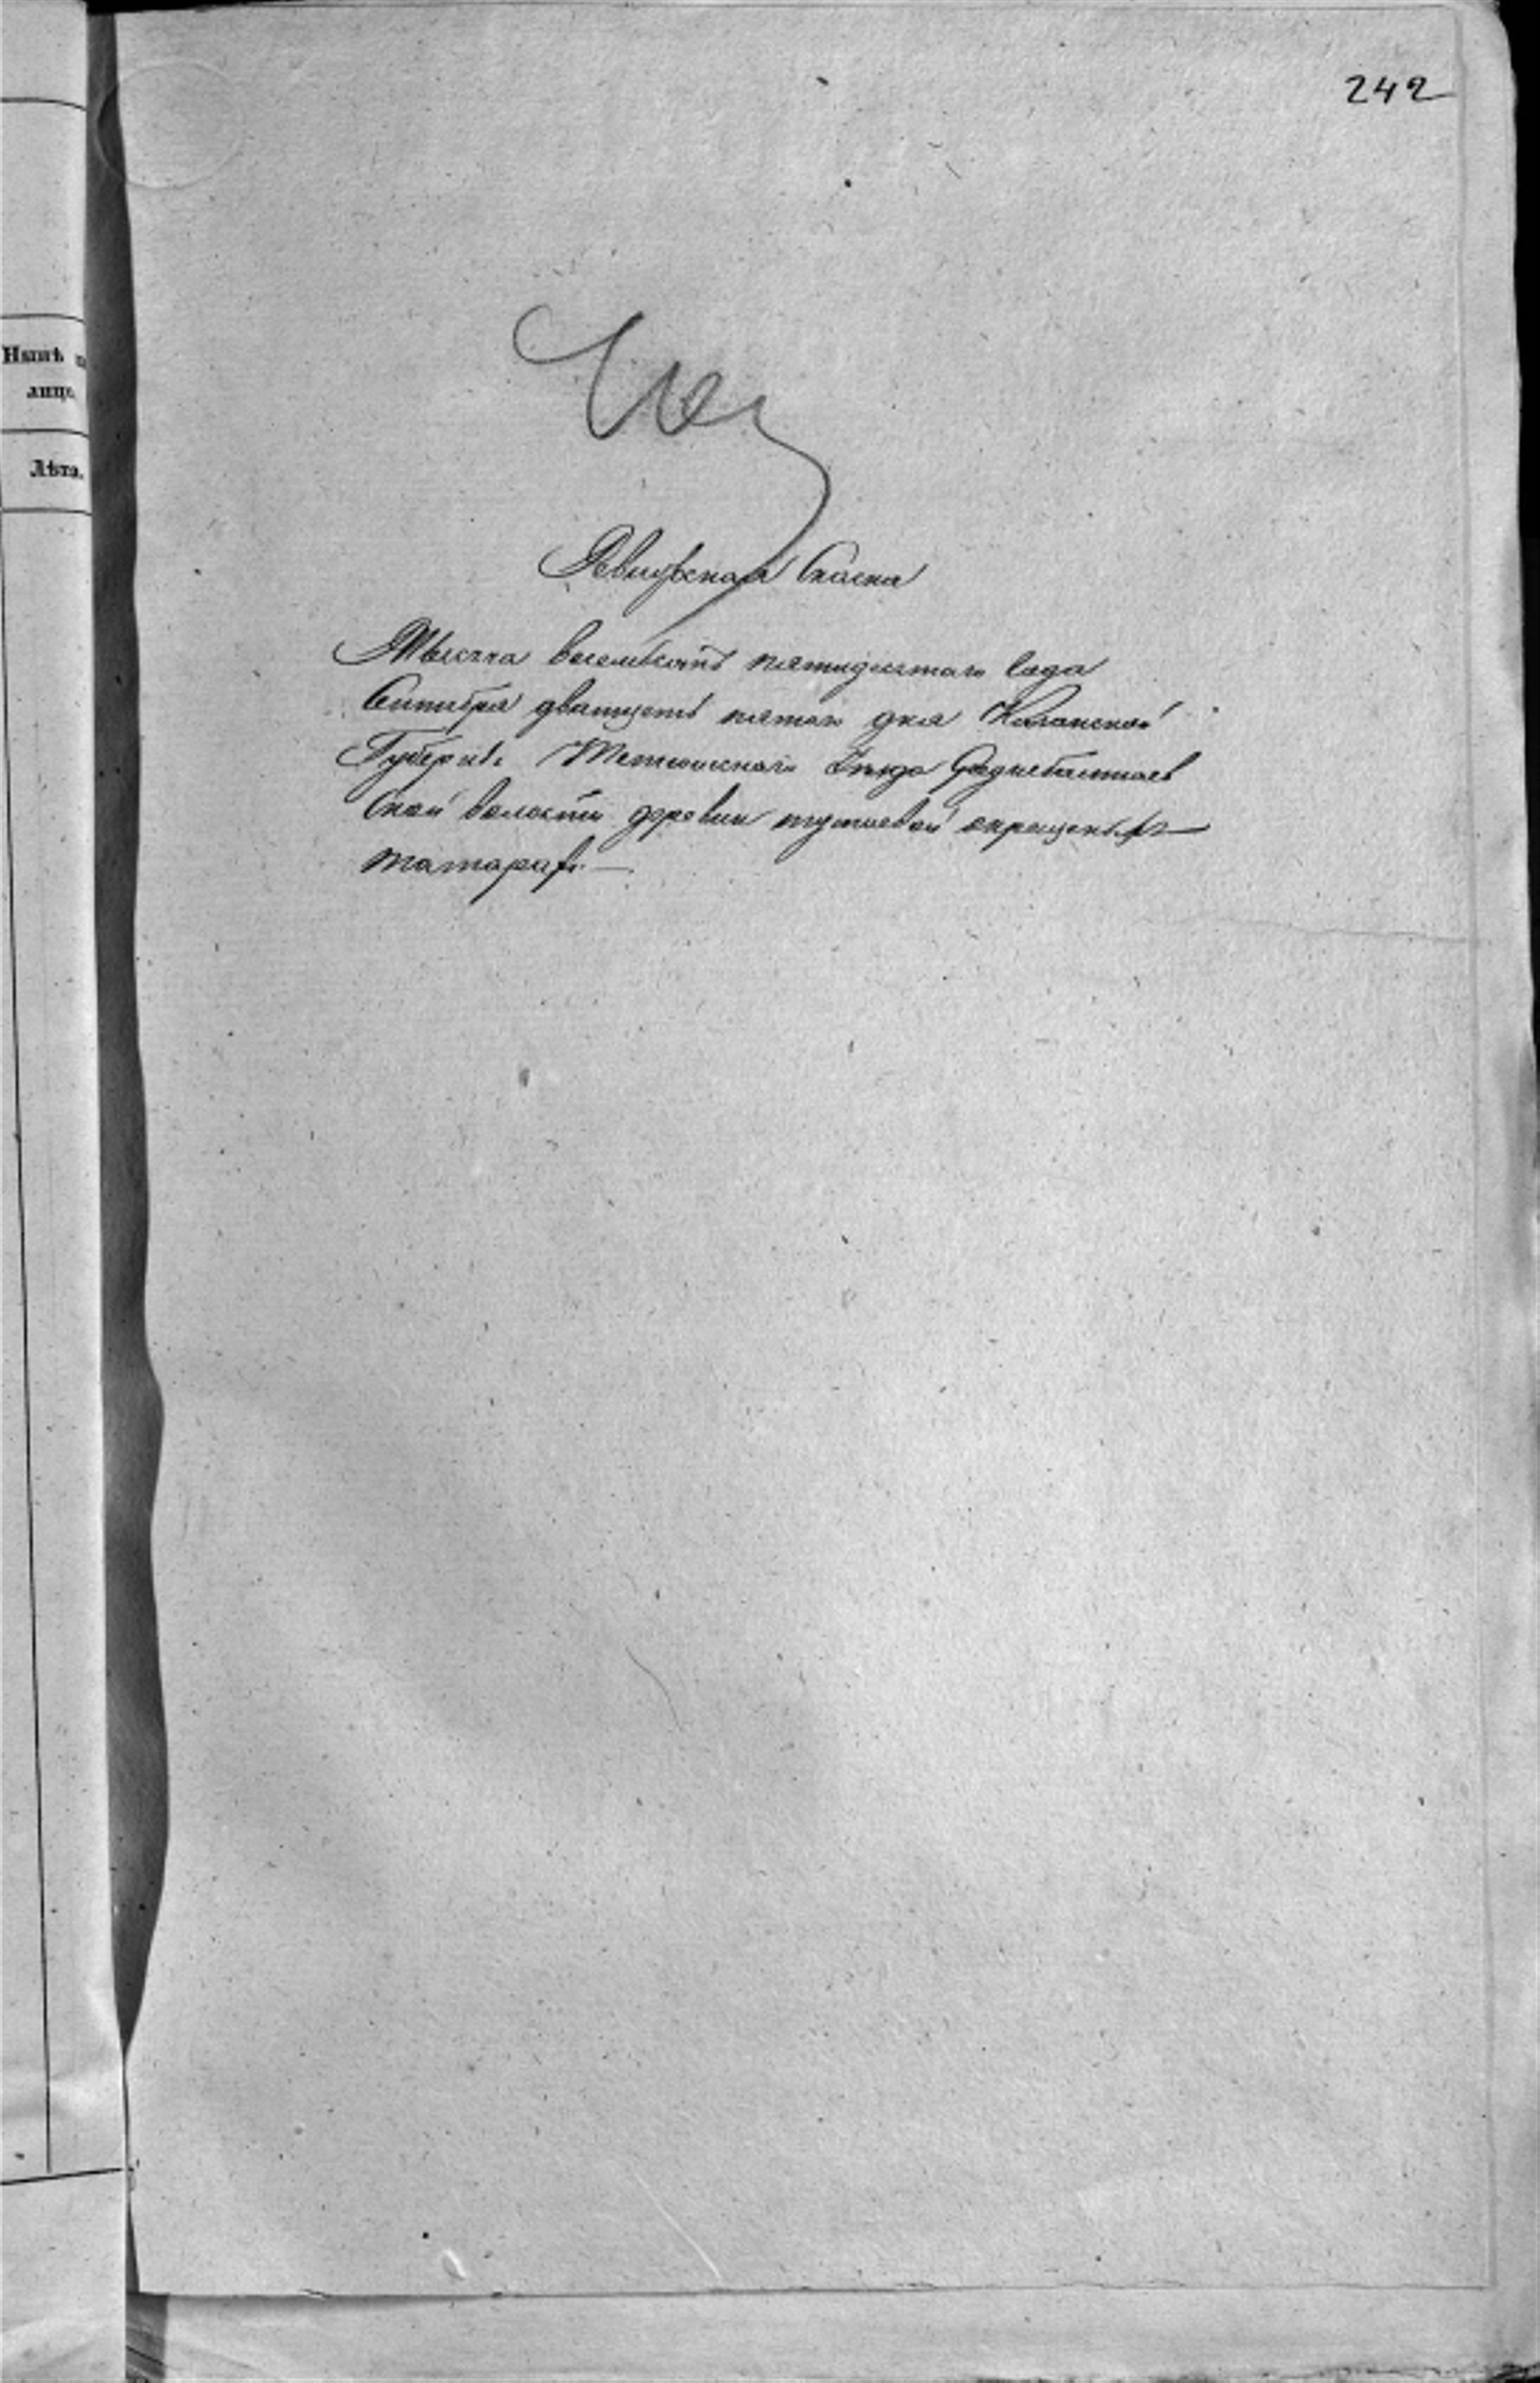 242
Нынѣ
лицо.
Лѣта.
Ревижская Скаска
Тысяча восемьсотъ пятидесятаго Года
Сентября дватцеть пятаго дня Казанской
Губернiи Тетюшскаго Уезда Среднебалтаев
Ской волости деревни тутаевой окрещеныхъ
татарахъ.